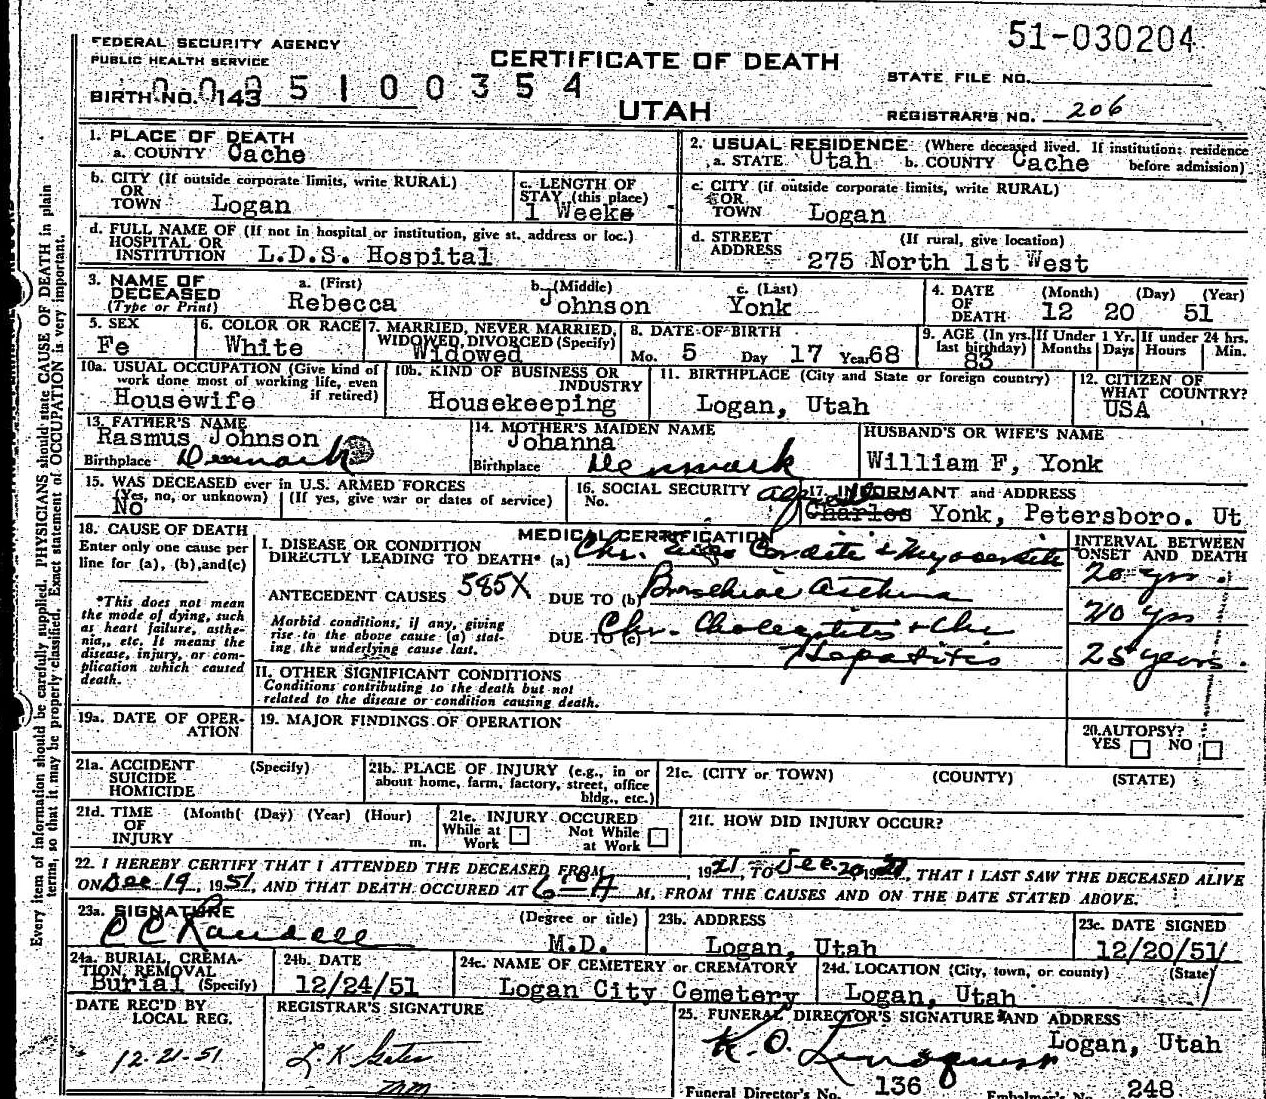 51-030204
FEDERAL SECURITY AGENCY
PUBLIC HEALTH SERVICE
CERTIFICATE OF DEATH
STATE FILE NO.
BIRTH NO. 143
0095100354
UTAH
REGISTRAR'S NO. 206
1. PLACE OF DEATH
a. COUNTY Cache
2. USUAL RESIDENCE (Where deceased lived. If institution: residence before admission)
a. STATE Utah b. COUNTY Cache
b. CITY (If outside corporate limits, write RURAL)
OR
TOWN Logan
c. LENGTH OF
STAY (this place)
1 Weeks
c. CITY (if outside corporate limits, write RURAL)
OR
TOWN Logan
d. FULL NAME OF (If not in hospital or institution, give st. address or loc.)
HOSPITAL OR
INSTITUTION L.D.S. Hospital
d. STREET (If rural, give location)
ADDRESS 275 North 1st West
3. NAME OF
DECEASED
(Type or Print)
a. (First) Rebecca
b. (Middle) Johnson
c. (Last) Yonk
4. DATE
OF
DEATH
(Month) (Day) (Year)
12 20 51
5. SEX
Fe
6. COLOR OR RACE
White
7. MARRIED, NEVER MARRIED,
WIDOWED, DIVORCED (Specify)
Widowed
8. DATE OF BIRTH
Mo. 5 Day 17 Year 68
9. AGE (In yrs. last birthday)
83
If Under 1 Yr.
Months Days
If under 24 hrs.
Hours Min.
10a. USUAL OCCUPATION (Give kind of work done most of working life, even if retired)
Housewife
10b. KIND OF BUSINESS OR INDUSTRY
Housekeeping
11. BIRTHPLACE (City and State or foreign country)
Logan, Utah
12. CITIZEN OF
WHAT COUNTRY?
USA
13. FATHER'S NAME
Rasmus Johnson
Birthplace Denmark
14. MOTHER'S MAIDEN NAME
Johanna
Birthplace Denmark
HUSBAND'S OR WIFE'S NAME
William F, Yonk
15. WAS DECEASED ever in U.S. ARMED FORCES
(Yes, no, or unknown) (If yes, give war or dates of service)
No
16. SOCIAL SECURITY
No.
17. INFORMANT and ADDRESS
Charles Yonk, Petersboro. Ut
18. CAUSE OF DEATH
Enter only one cause per
line for (a), (b), and (c)
*This does not mean
the mode of dying, such
as heart failure, asthe-
nia,, etc. It means the
disease, injury, or com-
plication which caused
death.
MEDICAL CERTIFICATION
I. DISEASE OR CONDITION
DIRECTLY LEADING TO DEATH* (a) Chr. Carditis & Myocarditis
INTERVAL BETWEEN
ONSET AND DEATH
20 yrs.
ANTECEDENT CAUSES 585X DUE TO (b) Bronchial Asthma
20 yrs
Morbid conditions, if any, giving
rise to the above cause (a) stat-
ing the underlying cause last.
DUE TO (c) Chr. Cholecystitis + Chr
Hepatitis
25 years.
II. OTHER SIGNIFICANT CONDITIONS
Conditions contributing to the death but not
related to the disease or condition causing death.
19a. DATE OF OPER-
ATION
19. MAJOR FINDINGS OF OPERATION
20. AUTOPSY?
YES NO
21a. ACCIDENT (Specify)
SUICIDE
HOMICIDE
21b. PLACE OF INJURY (e.g., in or
about home, farm, factory, street, office
bldg., etc.)
21c. (CITY or TOWN) (COUNTY) (STATE)
21d. TIME (Month( (Day) (Year) (Hour)
OF
INJURY m.
21e. INJURY OCCURED
While at Work Not While at Work
21f. HOW DID INJURY OCCUR?
22. I HEREBY CERTIFY THAT I ATTENDED THE DECEASED FROM , 1921, TO Dec. 20 1951, THAT I LAST SAW THE DECEASED ALIVE
ON Dec 19, 1951, AND THAT DEATH OCCURED AT 6 A M, FROM THE CAUSES AND ON THE DATE STATED ABOVE.
23a. SIGNATURE (Degree or title)
C C Randall M.D.
23b. ADDRESS
Logan, Utah
23c. DATE SIGNED
12/20/51
24a. BURIAL, CREMA-
TION, REMOVAL
Burial (Specify)
24b. DATE
12/24/51
24c. NAME OF CEMETERY or CREMATORY
Logan City Cemetery
24d. LOCATION (City, town, or county) (State)
Logan, Utah
DATE REC'D BY
LOCAL REG.
12-21-51
REGISTRAR'S SIGNATURE
25. FUNERAL DIRECTOR'S SIGNATURE AND ADDRESS
K. O. Lindquist Logan, Utah
Funeral Director's No. 136 Embalmer's No. 248
Every item of information should be carefully supplied. PHYSICIANS should state CAUSE OF DEATH in plain
terms, so that it may be properly classified. Exact statement of OCCUPATION is very important.